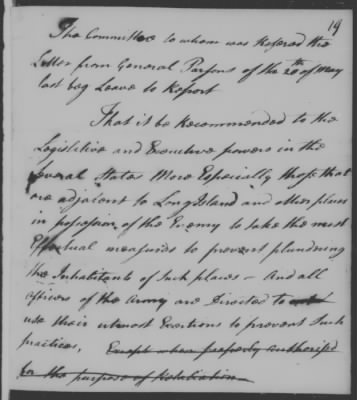 19
The Committee to whom was Refered the
Letter from General Parsons of the 20th of May
last beg Leave to Report
That it be Recommended to the
Legislative and Executive powers in the
several States More Especially those that
are adjacent to Long Island and other places
in possession of the Enemy to take the most
Effectual measures to prevent plundring
the Inhabitants of such places - And all
officers of the Army are Directed to
use their utmost Exertions to prevent such
practices, Except when properly authorised
for the purpose of Retaliation